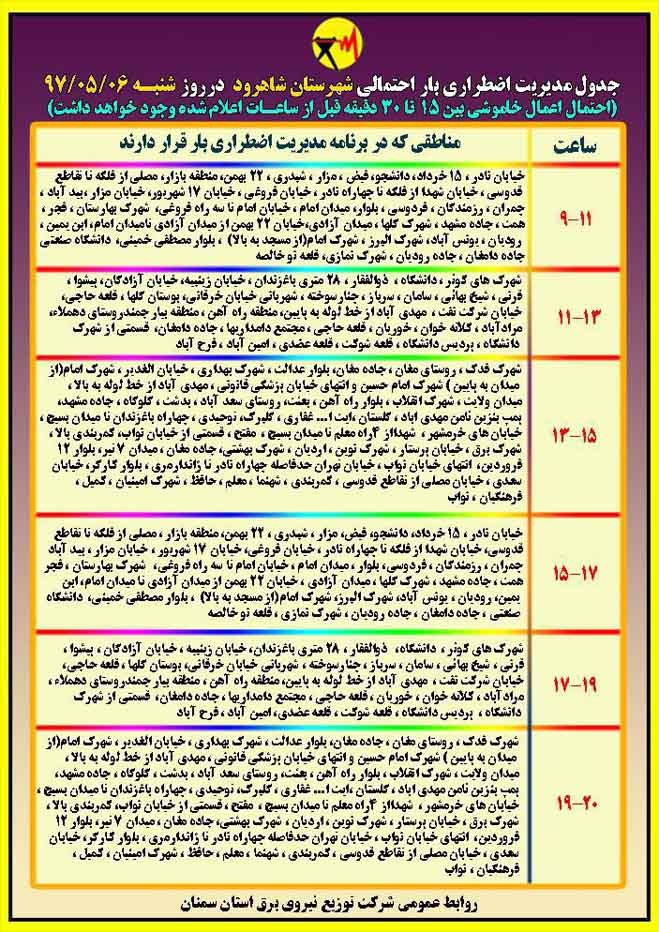 جدول مدیریت اضطراری بار احتمالی شهرستان شاهرود در روز شنبه ۹۷/۰۵/۰۶
(احتمال اعمال خاموشی بین ۱۵ تا ۳۰ دقیقه قبل از ساعات اعلام شده وجود خواهد داشت)
ساعت
مناطقی که در برنامه مدیریت اضطراری بار قرار دارند
۹-۱۱
خیابان نادر، ۱۵ خرداد، دانشجو، فیض، مزار، شیدری، ۲۲ بهمن، منطقه بازار، مصلی از فلکه تا تقاطع
قدوسی، خیابان شهدا از فلکه تا چهاراه نادر، خیابان فروغی، خیابان ۱۷ شهریور، خیابان مزار، بید آباد،
چمران، رزمندگان، فردوسی، بلوار، میدان امام، خیابان امام تا سه راه فروغی، شهرک بهارستان، فجر،
همت، جاده مشهد، شهرک گلها، میدان آزادی، خیابان ۲۲ بهمن از میدان آزادی تا میدان امام، ابن یمین،
رودیان، یونس آباد، شهرک البرز، شهرک امام(از مسجد به بالا)، بلوار مصطفی خمینی، دانشگاه صنعتی
جاده دامغان، جاده رودیان، شهرک نمازی، قلعه نو خالصه
۱۱-۱۳
شهرک های کوثر، دانشگاه، ذوالفقار، ۲۸ متری باغزندان، خیابان زینبیه، خیابان آزادگان، پیشوا،
قرنی، شیخ بهائی، سامان، سرباز، چنارسوخته، شهربانی خیابان خرقانی، بوستان گلها، قلعه حاجی،
خیابان شرکت نفت، مهدی آباد از خط لوله به پایین، منطقه راه آهن، منطقه بیارجمندروستای دهملاء،
مرادآباد، کلاته خوان، خوریان، قلعه حاجی، مجتمع دامداریها، جاده دامغان، قسمتی از شهرک
دانشگاه، پردیس دانشگاه، قلعه شوکت، قلعه عضدی، امین آباد، فرح آباد
۱۳-۱۵
شهرک فدک، روستای مغان، جاده مغان، بلوار عدالت، شهرک بهداری، خیابان الغدیر، شهرک امام(از
میدان به پایین) شهرک امام حسین و انتهای خیابان پزشکی قانونی، مهدی آباد از خط لوله به بالا،
میدان ولایت، شهرک انقلاب، بلوار راه آهن، بعثت، روستای سعد آباد، بدشت، کلوکاه، جاده مشهد،
پمپ بنزین ثامن مهدی اباد، گلستان، ایت ا... غفاری، گلبرک، توحیدی، چهاراه باغزندان تا میدان بسیج،
خیابان های خرمشهر، شهدااز ۴راه معلم تا میدان بسیج، مفتح، قسمتی از خیابان نواب، کمربندی بالا،
شهرک برق، خیابان پرستار، شهرک نوین، اردیان، شهرک بهشتی، جاده مغان، میدان ۷ تیر، بلوار ۱۲
فروردین، انتهای خیابان نواب، خیابان تهران حدفاصله چهاراه نادر تا ژاندارمری، بلوار کارگر، خیابان
سعدی، خیابان مصلی از تقاطع قدوسی، کمربندی، شهنما، معلم، حافظ، شهرک امینیان، کمیل،
فرهنگیان، نواب
۱۵-۱۷
خیابان نادر، ۱۵ خرداد، دانشجو، فیض، مزار، شیدری، ۲۲ بهمن، منطقه بازار، مصلی از فلکه تا تقاطع
قدوسی، خیابان شهدا از فلکه تا چهاراه نادر، خیابان فروغی، خیابان ۱۷ شهریور، خیابان مزار، بید آباد
چمران، رزمندگان، فردوسی، بلوار، میدان امام، خیابان امام تا سه راه فروغی، شهرک بهارستان، فجر
همت، جاده مشهد، شهرک گلها، میدان آزادی، خیابان ۲۲ بهمن از میدان آزادی تا میدان امام، ابن
یمین، رودیان، یونس آباد، شهرک البرز، شهرک امام(از مسجد به بالا)، بلوار مصطفی خمینی، دانشگاه
صنعتی، جاده دامغان، جاده رودیان، شهرک نمازی، قلعه نو خالصه
۱۷-۱۹
شهرک های کوثر، دانشگاه، ذوالفقار، ۲۸ متری باغزندان، خیابان زینبیه، خیابان آزادگان، پیشوا،
قرنی، شیخ بهائی، سامان، سرباز، چنارسوخته، شهربانی خیابان خرقانی، بوستان گلها، قلعه حاجی،
خیابان شرکت نفت، مهدی آباد از خط لوله به پایین، منطقه راه آهن، منطقه بیار جمندروستای دهملاء،
مرادآباد، کلاته خوان، خوریان، قلعه حاجی، مجتمع دامداریها، جاده دامغان، قسمتی از شهرک
دانشگاه، پردیس دانشگاه، قلعه شوکت، قلعه عضدی، امین آباد، فرح آباد
۱۹-۲۰
شهرک فدک، روستای مغان، جاده مغان، بلوار عدالت، شهرک بهداری، خیابان الغدیر، شهرک امام(از
میدان به پایین) شهرک امام حسین و انتهای خیابان پزشکی قانونی، مهدی آباد از خط لوله به بالا،
میدان ولایت، شهرک انقلاب، بلوار راه آهن، بعثت، روستای سعد آباد، بدشت، کلوکاه، جاده مشهد،
پمپ بنزین ثامن مهدی اباد، گلستان، ایت ا... غفاری، گلبرک، توحیدی، چهاراه باغزندان تا میدان بسیج،
خیابان های خرمشهر، شهدااز ۴راه معلم تا میدان بسیج، مفتح، قسمتی از خیابان نواب، کمربندی بالا،
شهرک برق، خیابان پرستار، شهرک نوین، اردیان، شهرک بهشتی، جاده مغان، میدان ۷ تیر، بلوار ۱۲
فروردین، انتهای خیابان نواب، خیابان تهران حدفاصله چهاراه نادر تا ژاندارمری، بلوار کارگر، خیابان
سعدی، خیابان مصلی از تقاطع قدوسی، کمربندی، شهنما، معلم، حافظ، شهرک امینیان، کمیل،
فرهنگیان، نواب
روابط عمومی شرکت توزیع نیروی برق استان سمنان